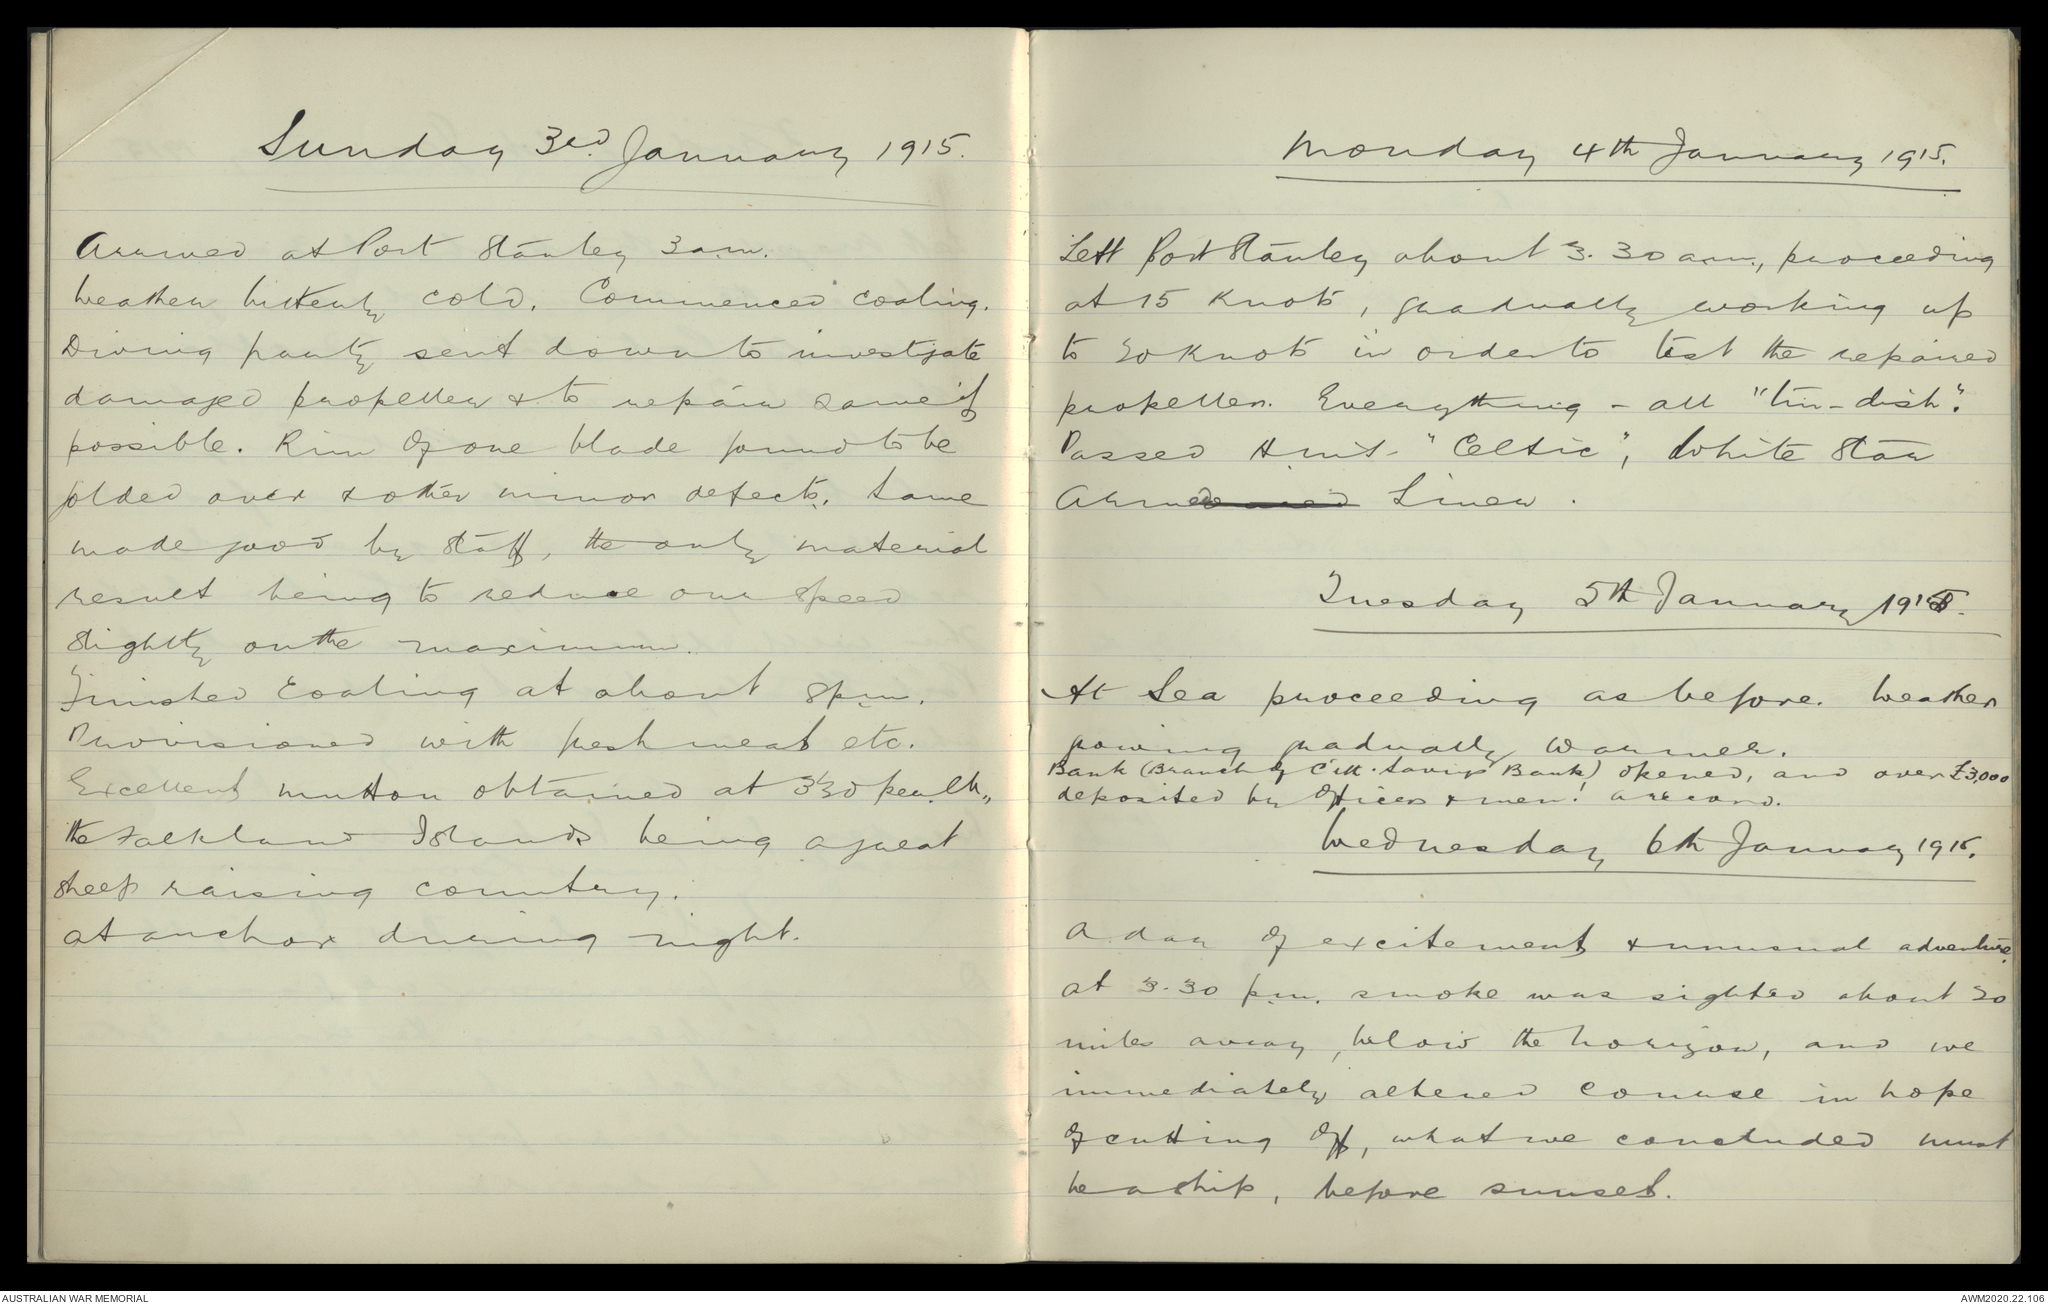 Sunday 3rd. January 1915.
Arrived at Port Stanley 3 a.m.
Weather bitterly cold. Commenced coaling.
Diving party sent down to investigate
damaged propeller & to repair same if
possible. Rim of one blade found to be
folded over & other minor defects. Same
made good by Staff, the only material
result being to reduce our speed
slightly on the maximum.
Finished Coaling at about 8 p.m.
Provisioned with fresh meat etc.
Excellent mutton obtained at per lb.,
the Falkland Islands being a great
sheep raising country.
At anchor during night.
Monday 4th January 1915.
Left Port Stanley about 3.30 a.m., proceeding
at 15 Knots, gradually working up
to 20 Knots in order to test the repaired
propeller. Everything - all "tin-dish".
Passed H.M.S. "Celtic", White Star
Armed Liner.
Tuesday 5th January 1915.
At Sea proceeding as before. Weather
growing gradually warmer.
Bank (Branch of C'wlth. Savings Bank) opened, and over £3,000
deposited by Officers & men! a record.
Wednesday 6th January 1915.
A day of excitement & unusual adventure.
At 3.30 p.m. smoke was sighted about 20
miles away, below the horizon, and we
immediately altered course in hope
of cutting off, what we concluded must
be a ship, before sunset.
AUSTRALIAN WAR MEMORIAL
AWM2020.22.106